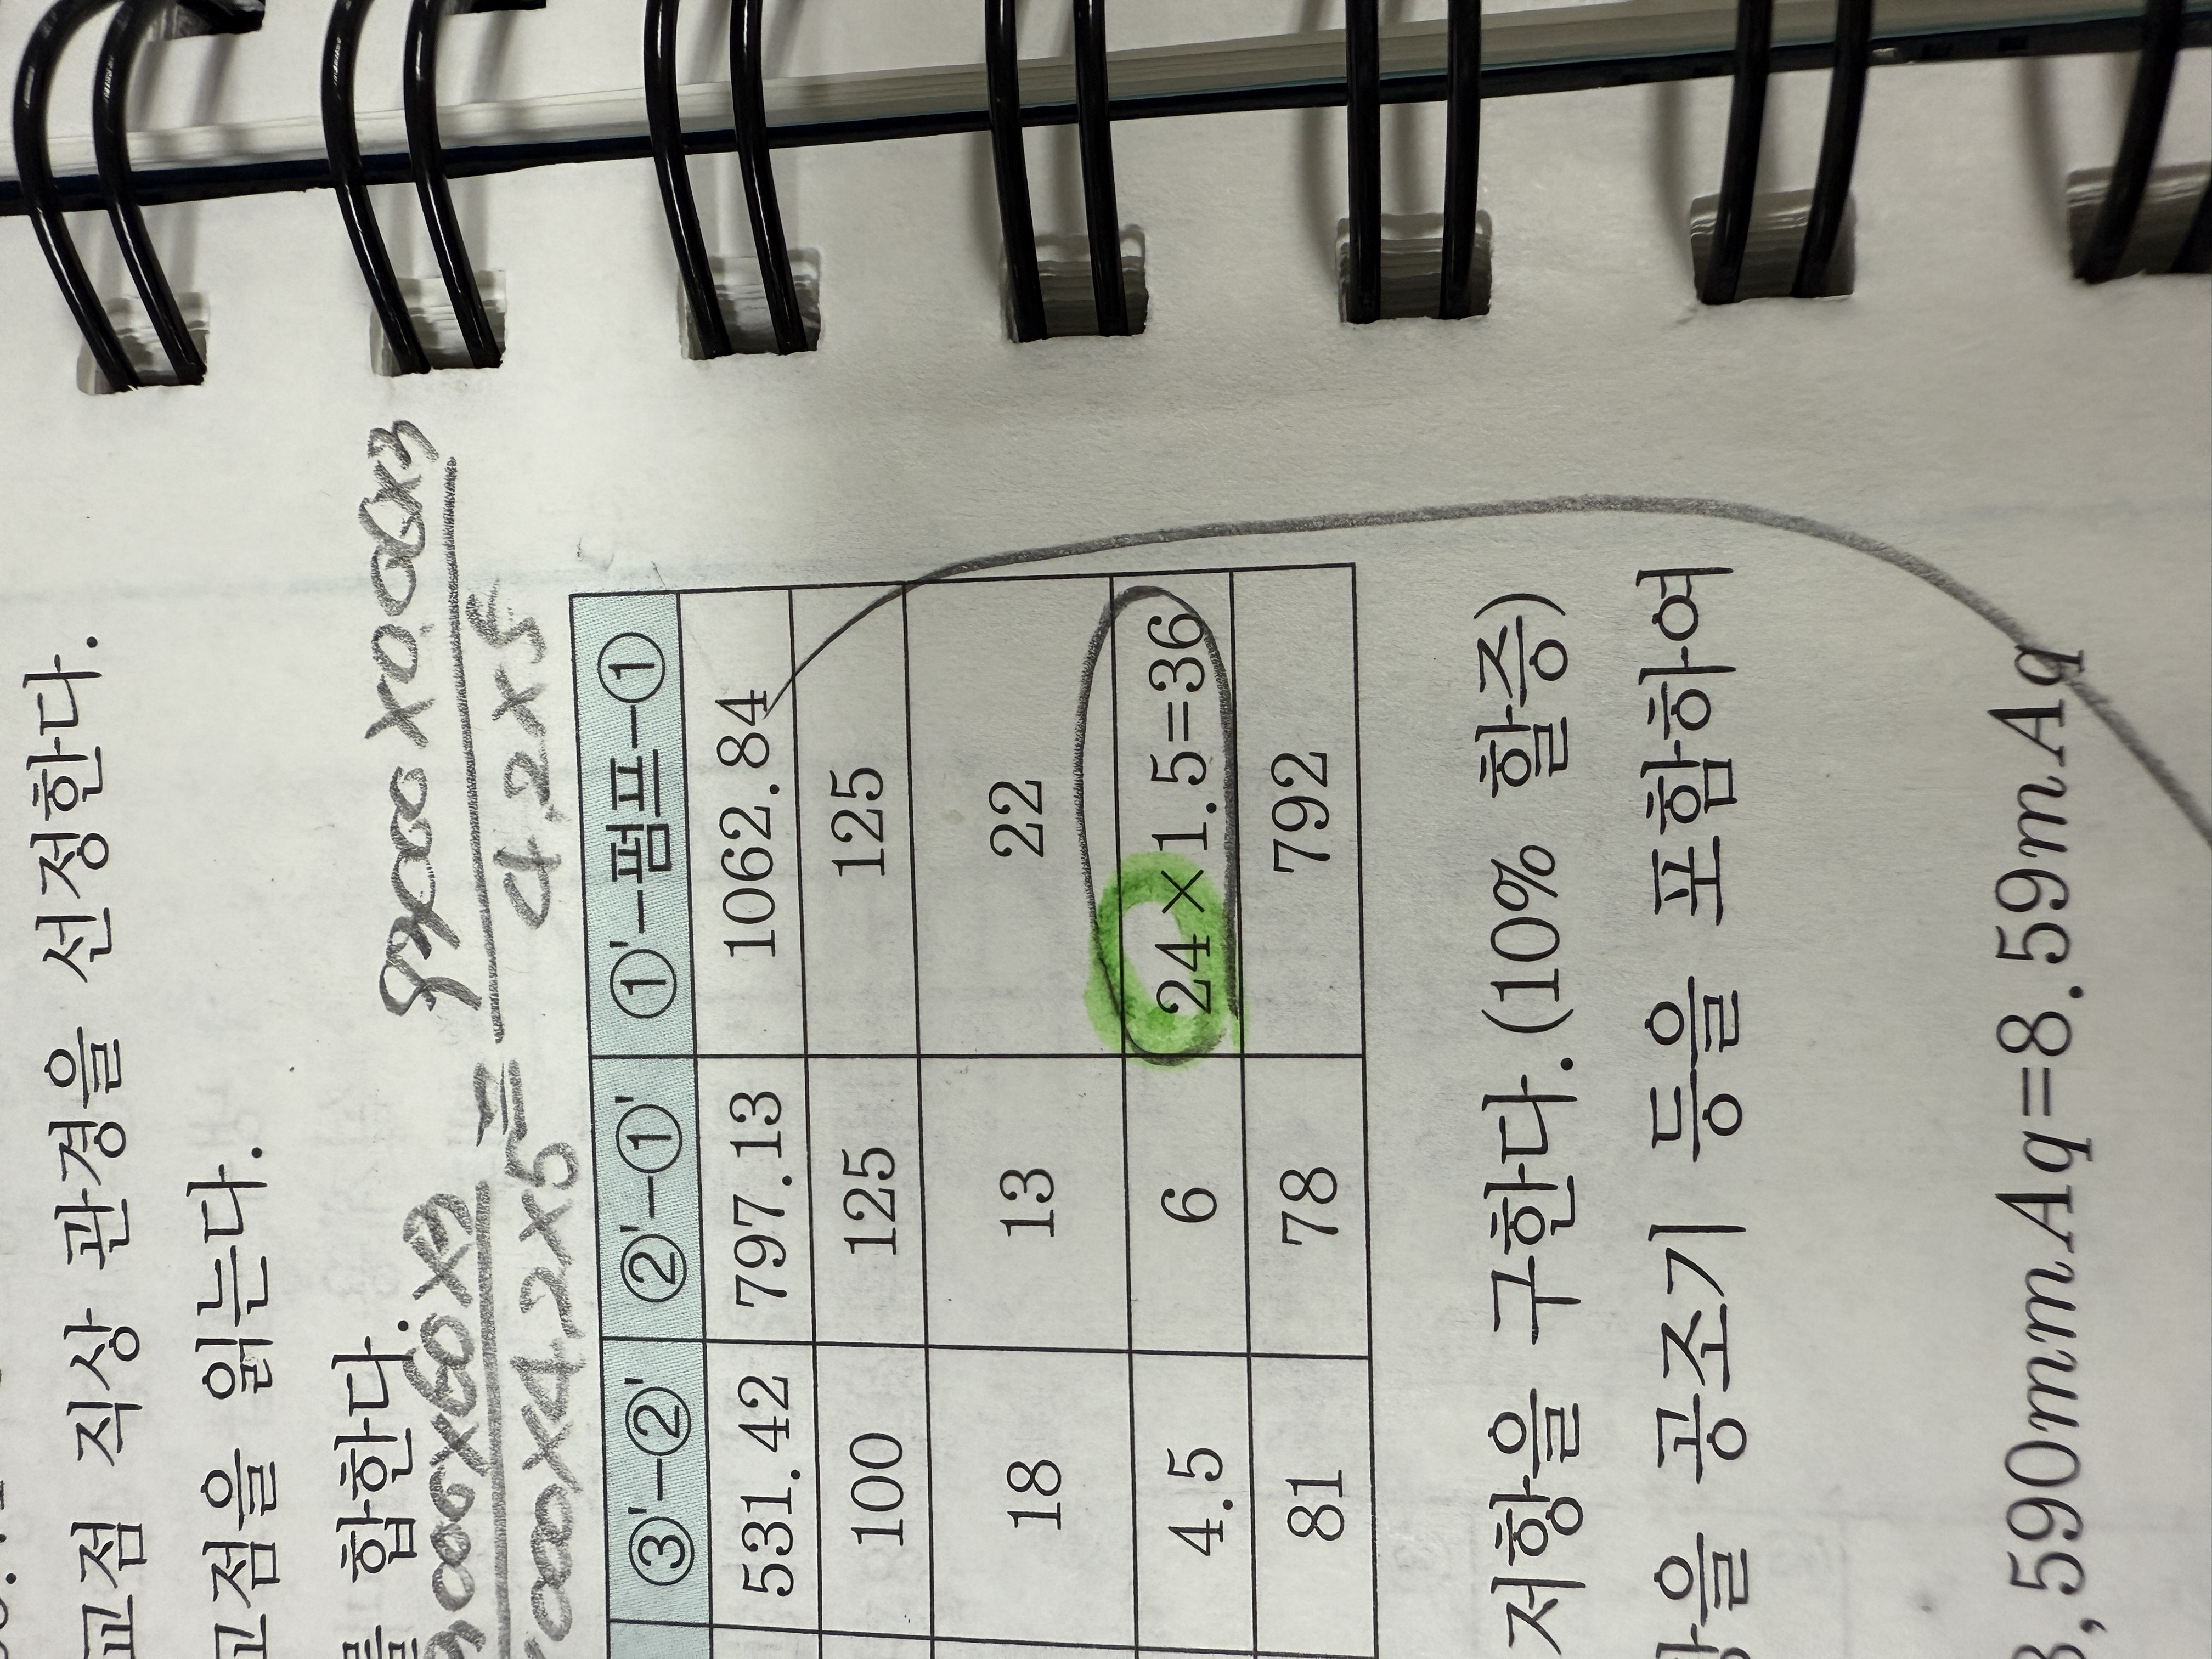 교점 직상 관경을 선정한다.
고점을 읽는다.
를 합한다.
9000×0.06×3
4.2×5
000×60×3
000×4.2×5 =
③'-②' ②'-①' ①'-펌프-①
531.42 797.13 1062.84
100 125 125
18 13 22
4.5 6 24×1.5=36
81 78 792
저항을 구한다.(10% 할증)
항을 공조기 등을 포함하여
,590mmAq=8.59mAq